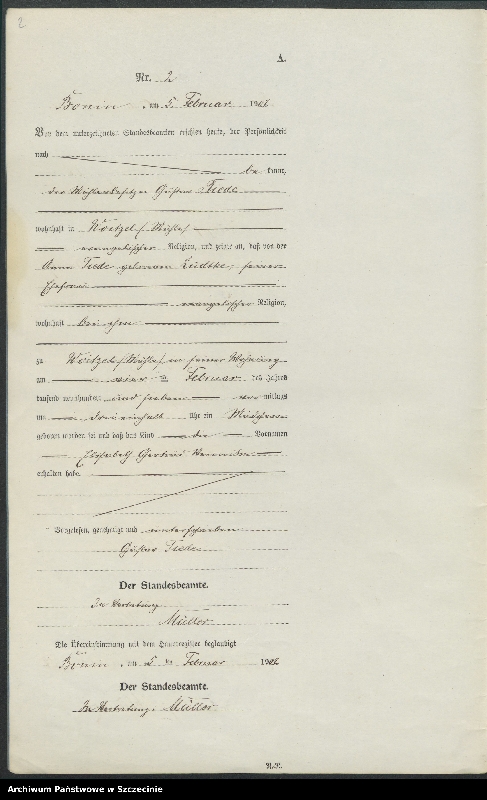 2
A.
Nr. 2
Bonin, am 5. Februar 19
Vor dem unterzeichneten Standesbeamten erschien heute, der Persönlichkeit
nach
be kannt,
der Mühlenbesitzer Gustav Tiede
wohnhaft in Woitzel, Mühle,
evangelischer Religion, und zeigte an, daß von der
Anna Tiede geborenen Lüdtke, seiner
Ehefrau
evangelischer Religion,
wohnhaft bei ihm
zu Woitzel, Mühle, in seiner Wohnung
am vier ten Februar des Jahres
tausend neunhundert und sieben vor mittags
um dreieinhalb Uhr ein Mädchen
geboren worden sei und daß das Kind die Vornamen
Elisabeth Gertrud
erhalten habe.
Vorgelesen, genehmigt und unterschrieben
Gustav Tiede
Der Standesbeamte.
In Vertretung
Müller
Die Übereinstimmung mit dem Hauptregister beglaubigt
Bonin, am 5. ten Februar 19
Der Standesbeamte.
In Vertretung: Müller
Archiwum Państwowe w Szczecinie